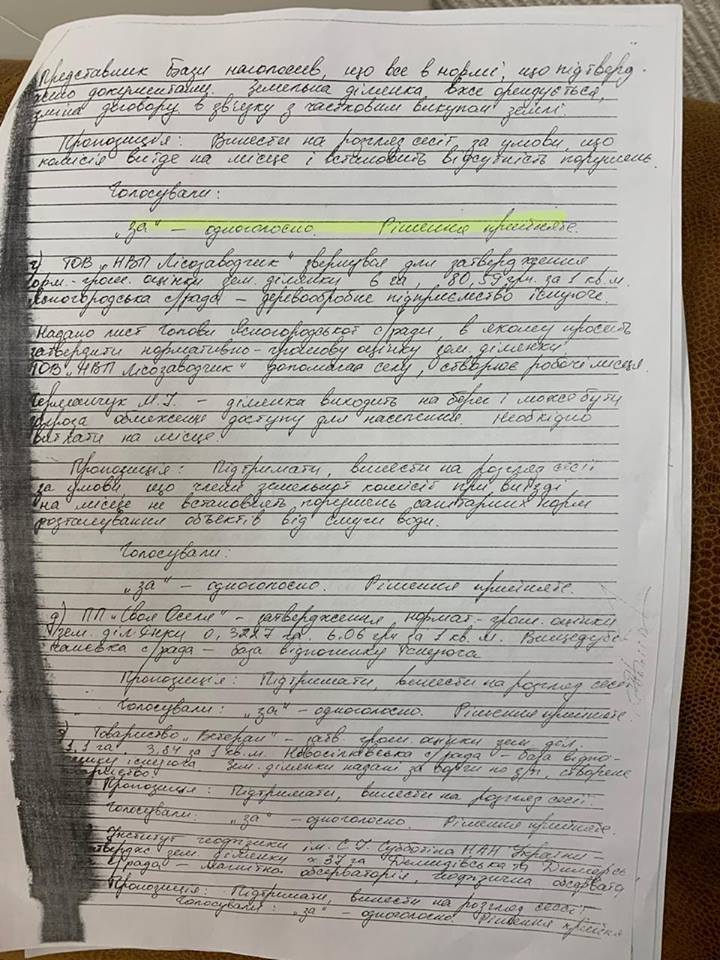 Представник Бази наголосив, що все в нормі, що підтверд-
жено документами. Земельна ділянка вже орендується,
зміна договору в зв'язку з частковим викупом землі.
Пропозиція: Винести на розгляд сесії за умови, що
комісія виїде на місце і встановить відсутність порушень.
Голосували:
„за" – одноголосно. Рішення прийняте.
ТОВ „НВП Лісозаводчик" звернувся для затвердження
норм.-грош. оцінки зем. ділянки 6 га, 80,59 грн. за 1 кв.м.
Ясногородська с/рада – деревообробне підприємство існуюче.
Надано лист Голови Ясногородської с/ради, в якому просить
затвердити нормативно-грошову оцінку зем. ділянки
ТОВ „НВП Лісозаводчик" допомагає селу, створює робочі місця.
М.І. – ділянка виходить на берег і може бути
загроза обмеження доступу для населення. Необхідно
виїхати на місце
Пропозиція: Підтримати, винести на розгляд сесії
за умови що члени земельної комісії при виїзді
на місце не встановлять порушень санітарних норм
розташування объектів від смуги води.
Голосували:
„за" – одноголосно. Рішення прийняте.
д) ПП „Своя Оселя" – затвердження нормат.-грош. оцінки
зем. ділянку 0,3227 га. 6.06 грн за 1 кв.м. Вищедубе-
чанська с/рада – база відпочинку існуюча
Пропозиція: Підтримати, винести на розгляд сесії
Голосували: „за" – одноголосно. Рішення прийняте
Товариство „Ветеран" – затв. грош. оцінки зем. діл.
1,1 га, 3,84 за 1 кв.м. Новосілківська с/рада – база відпо-
чинку існуюча. Зем. ділянки надані за
товариство.
Пропозиція: Підтримати, винести на розгляд сесії.
Голосували: „за" – одноголосно. Рішення прийняте.
Інститут геофізики ім. С.І. Субботіна НАН України –
затвердж. зем. ділянку 37 га Демидівська та Димерсь-
ка с/рада – магнітна обсерваторія, геофізична
Пропозиція: Підтримати, винести на розгляд сесії
Голосували: „за" – одноголосно. Рішення